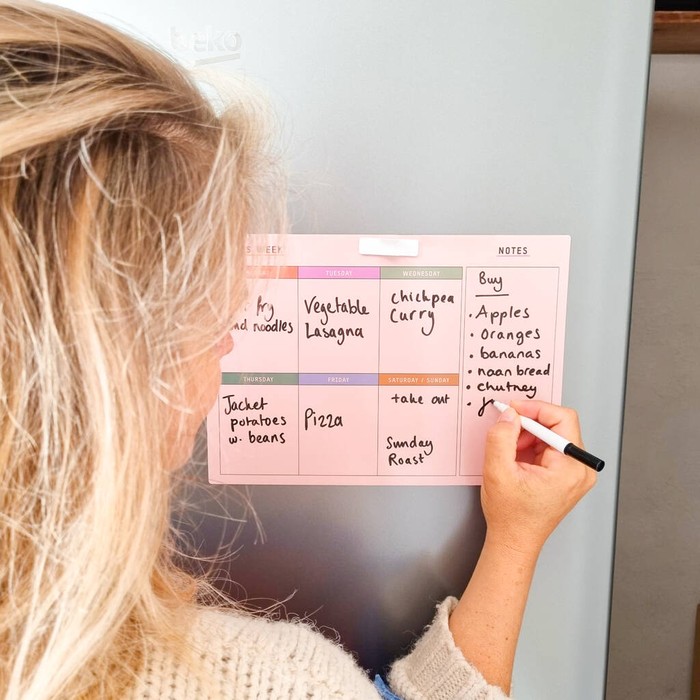 beko
WEEK
NOTES
TUESDAY
WEDNESDAY
fry
noodles
Vegetable
Lasagna
chickpea
Curry
THURSDAY
FRIDAY
SATURDAY / SUNDAY
Jacket
potatoes
w. beans
Pizza
take out
Sunday
Roast
Buy
• Apples
• Oranges
• bananas
• naan bread
• chutney
•